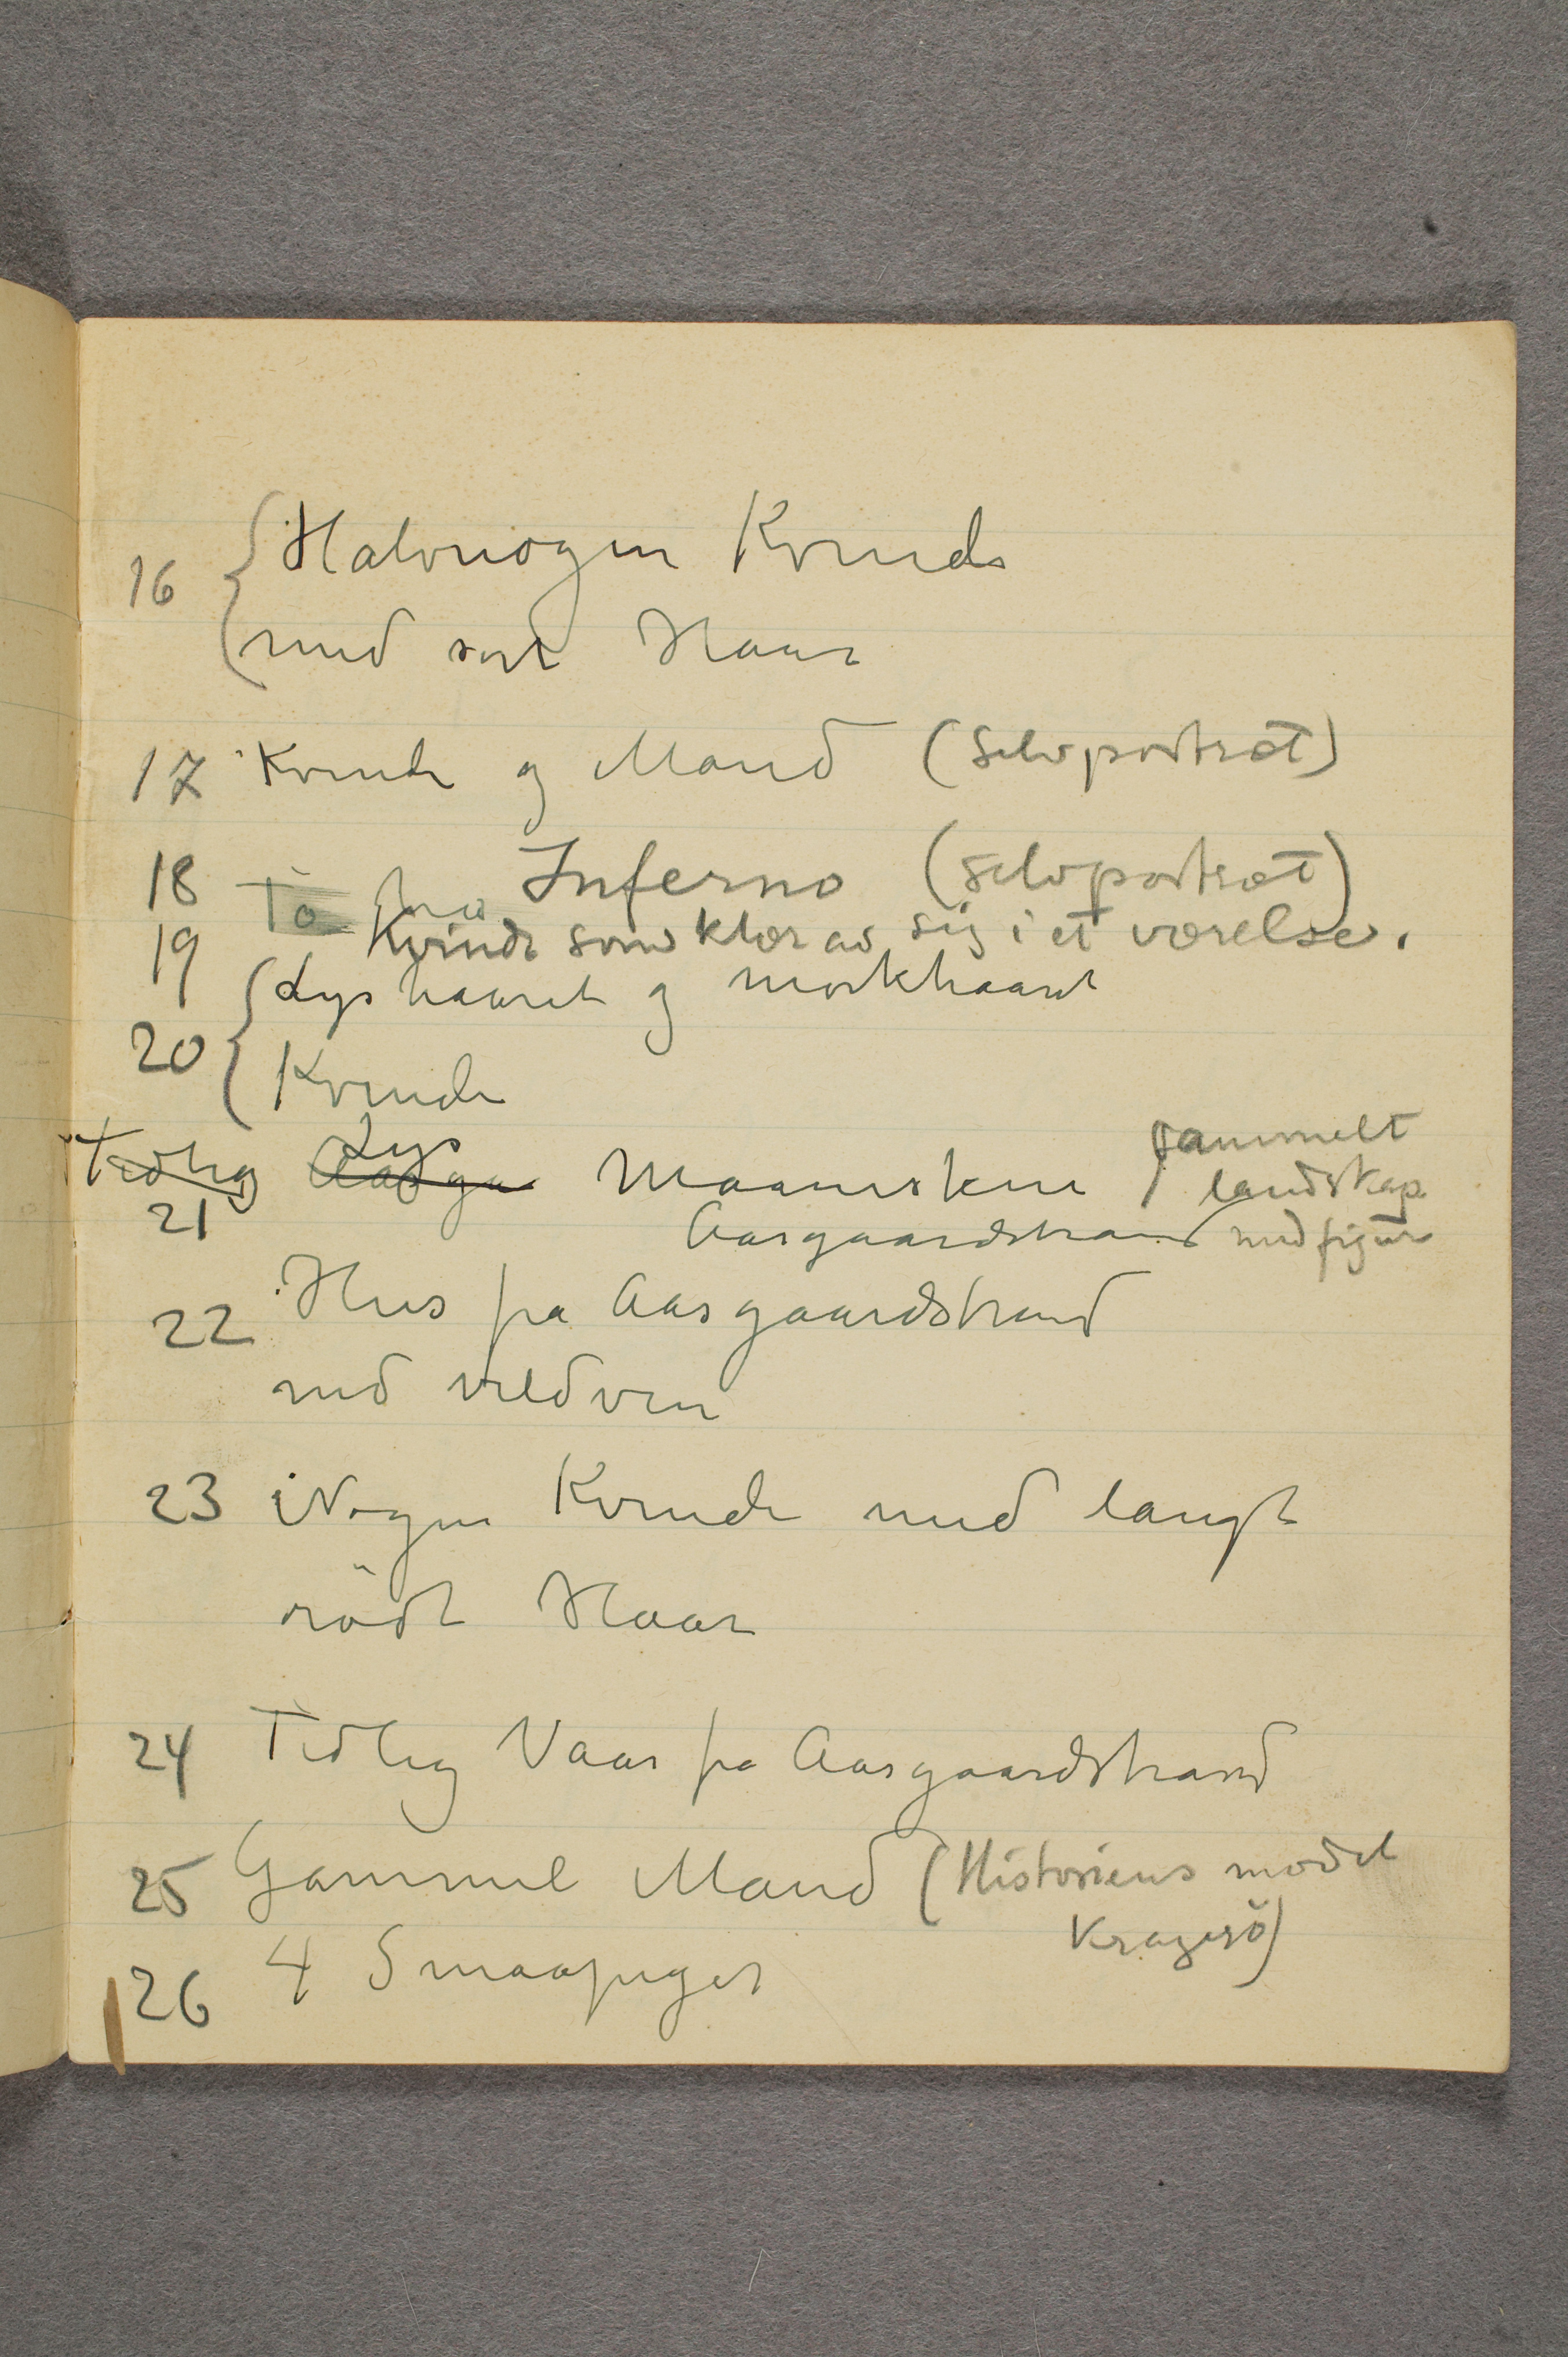 16 Halvnøgen Kvinde
med sort Haar
17 Kvinde og Mand (Selvportræt)
18 To fra Inferno (selvportræt)
19 Kvinde som klær av sig i et værelse.
20 Lyshaaret og mørkhaaret
Kvinde
Tidlig Aasga Lys Maaneskin gammelt
21 landskap
Aasgaardstrand med figur
22 Hus fra Aasgaardstrand
med vildvin
23 Nøgen Kvinde med langt
rödt Haar
24 Tidlig Vaar fra Aasgaardstrand
25 Gammel Mand (Historiens model
Kragerö)
26 4 Smaapiger